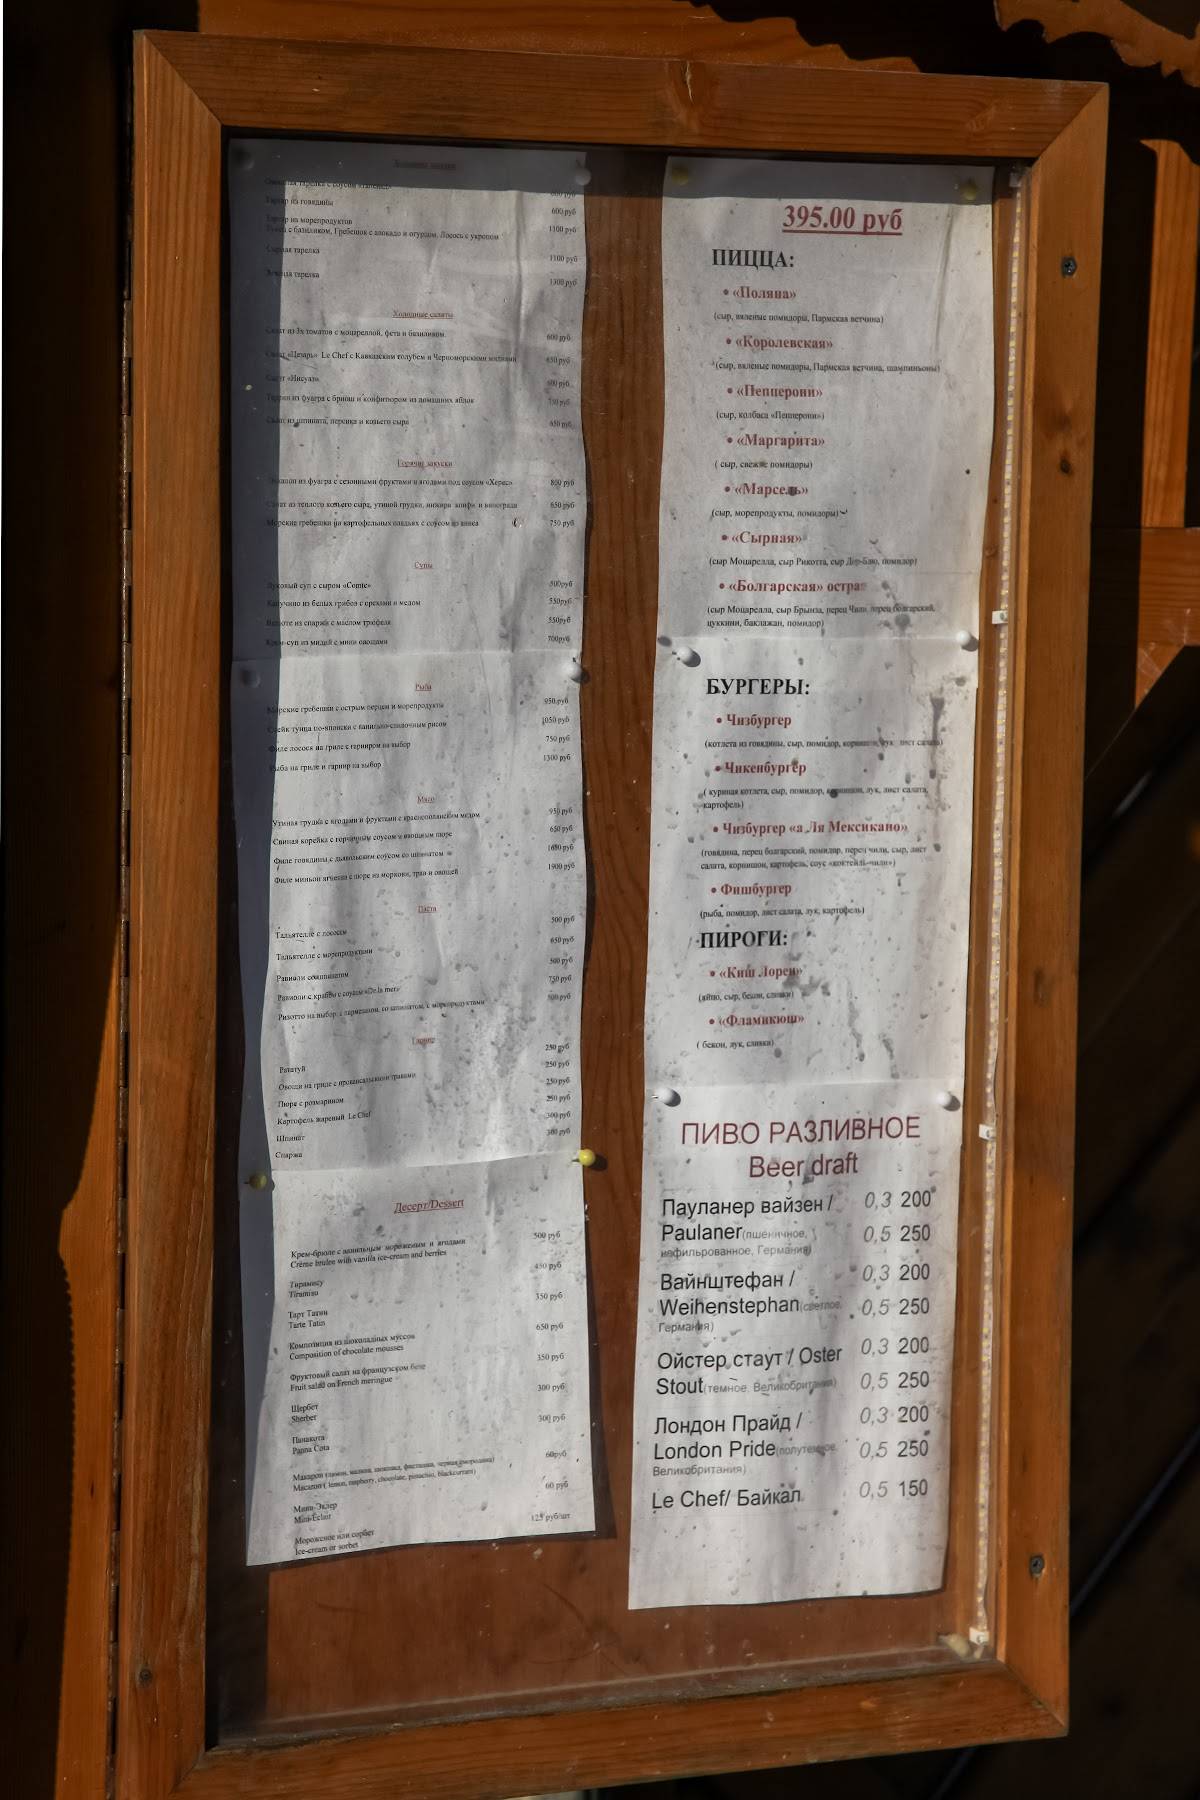 Холодные закуски
тарелка с соусом
600 руб
из говядины
600 руб
из морепродуктов
с базиликом, Гребешок с авокадо и огурцом, Лосось с укропом
1100 руб
тарелка
1100 руб
тарелка
1300 руб
Холодные салаты
из 3х томатов с моцареллой, фета и базиликом.
600 руб
«Цезарь» Le Chef с Кавказским голубем и Черноморскими мидиями
650 руб
«Нисуаз»
600 руб
из фуагра с бриош и конфитюром из домашних яблок
750 руб
из шпината, персика и козьего сыра
650 руб
Горячие закуски
из фуагра с сезонными фруктами и ягодами под соусом «Херес»
800 руб
из теплого козьего сыра, утиной грудки, инжира и винограда
650 руб
Морские гребешки на картофельных оладьях с соусом из
750 руб
Супы
Луковый суп с сыром «Comte»
500руб
Капучино из белых грибов с орехами и медом
550руб
из спаржи с маслом трюфеля
550руб
Крем-суп из мидий с мини овощами
700руб
Рыба
Морские гребешки с острым перцем и морепродукты
950 руб
Стейк тунца по-японски с ванильно-сливочным рисом
1050 руб
Филе лосося на гриле с гарниром на выбор
750 руб
Рыба на гриле и гарнир на выбор
1300 руб
Мясо
Утиная грудка с ягодами и фруктами с краснополянским медом
950 руб
Свиная корейка с горчичным соусом и овощным пюре
650 руб
Филе говядины с дьявольским соусом со шпинатом
1600 руб
Филе миньон ягненка с пюре из моркови, трав и овощей
1900 руб
Паста
Тальятелле с лососем
500 руб
Тальятелле с морепродуктами
650 руб
Равиоли со шпинатом
500 руб
Равиоли с крабом с соусом «De la mer»
750 руб
Ризотто на выбор: с пармезаном, со шпинатом, с морепродуктами
500 руб
Гарнир
Рататуй
250 руб
Овощи на гриле с провансальскими травами
250 руб
Пюре с розмарином
250 руб
Картофель жареный Le Chef
250 руб
Шпинат
300 руб
Спаржа
300 руб
Десерт/Dessert
Крем-брюле с ванильным мороженым и ягодами
Crème brulee with vanilla ice-cream and berries
500 руб
Тирамису
Tiramisu
450 руб
Тарт Татин
Tarte Tatin
350 руб
Композиция из шоколадных муссов
Composition of chocolate mousses
650 руб
Фруктовый салат на французском безе
Fruit salad on French meringue
350 руб
Щербет
Sherbet
300 руб
Панакота
Panna Cota
300 руб
Макарон (лимон, малина, шоколад, фисташки, черная смородина)
Macaron ( lemon, raspberry, chocolate, pistachio, blackcurrant)
60руб
Мини-Эклер
Mini-Eclair
60 руб
Мороженое или сорбет
Ice-cream or sorbet
125 руб/шт
395.00 руб
ПИЦЦА:
• «Поляна»
(сыр, вяленые помидоры, Пармская ветчина)
• «Королевская»
(сыр, вяленые помидоры, Пармская ветчина, шампиньоны)
• «Пепперони»
(сыр, колбаса «Пепперони»)
• «Маргарита»
( сыр, свежие помидоры)
• «Марсель»
(сыр, морепродукты, помидоры)
• «Сырная»
(сыр Моцарелла, сыр Рикотта, сыр Дор-Блю, помидор)
• «Болгарская» острая
(сыр Моцарелла, сыр Брынза, перец Чили, перец болгарский,
цуккини, баклажан, помидор)
БУРГЕРЫ:
• Чизбургер
(котлета из говядины, сыр, помидор, корнишон, лук, лист салата)
• Чикенбургер
( куриная котлета, сыр, помидор, корнишон, лук, лист салата,
картофель)
• Чизбургер «а Ля Мексикано»
(говядина, перец болгарский, помидор, перец чили, сыр, лист
салата, корнишон, картофель, соус «коктейль-чили»)
• Фишбургер
(рыба, помидор, лист салата, лук, картофель)
ПИРОГИ:
• «Киш Лорен»
(яйцо, сыр, бекон, сливки)
• «Фламикюш»
( бекон, лук, сливки)
ПИВО РАЗЛИВНОЕ
Beer draft
Пауланер вайзен / 0,3 200
Paulaner(пшеничное, 0,5 250
нефильрованное, Германия)
Вайнштефан / 0,3 200
Weihenstephan(светлое, 0,5 250
Германия)
Ойстер стаут / Oster 0,3 200
Stout(темное, Великобритания) 0,5 250
Лондон Прайд / 0,3 200
London Pride(полутемное, 0,5 250
Великобритания)
Le Chef/ Байкал 0,5 150